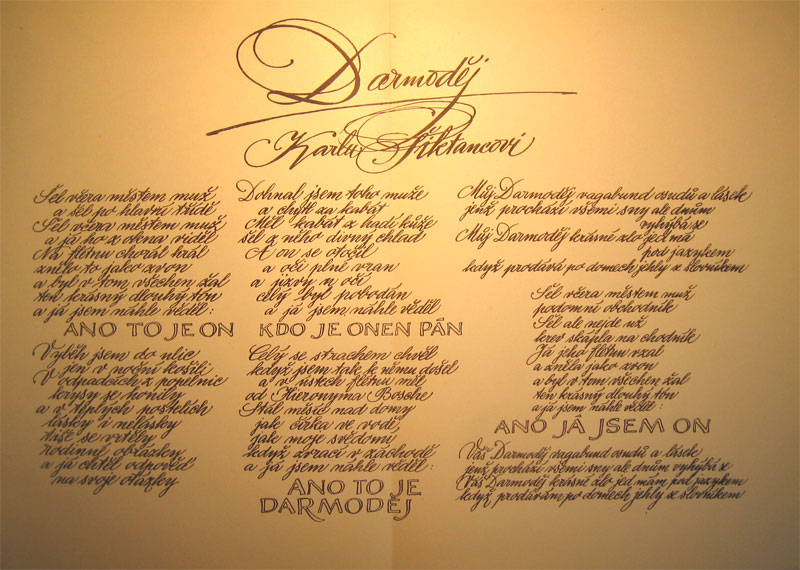 Darmoděj
Karlu Šiktancovi
Šel včera městem muž
a šel po hlavní třídě
Šel včera městem muž
a já ho z okna viděl
Na flétnu chorál hrál
znělo to jako zvon
a byl v tom všechen žal
ten krásný dlouhý tón
a já jsem náhle věděl:
ANO TO JE ON
Vyběh jsem do ulic
v jen v noční košili
V odpadcích z popelnic
krysy se honily
a v teplých postelích
lásky i nelásky
tiše se vrtěly
rodinné obrázky
a já chtěl odpověď
na svoje otázky
Dohnal jsem toho muže
a chytl za kabát
Měl kabát z hadí kůže
šel z něho divný chlad
A on se otočil
a oči plné vran
a jizvy u očí
celý byl pobodán
a já jsem náhle věděl
KDO JE ONEN PÁN
Celý se strachem chvěl
když jsem tak k němu došel
a v ústech flétnu měl
od Hieronyma Bosche
Stál měsíc nad domy
jak čírka ve vodě
jak moje svědomí
když zvrací v záchodě
a já jsem náhle věděl:
ANO TO JE
DARMODĚJ
Můj Darmoděj vagabund osudů a lásek
jenž prochází všemi sny ale dnům
vyhýbá se
Můj Darmoděj krásné zlo jed má
pod jazykem
když prodává po domech jehly se slovníkem
Šel včera městem muž
podomní obchodník
Šel ale nejde už
krev skápla na chodník
Já jeho flétnu vzal
a zněla jako zvon
a byl v tom všechen žal
ten krásný dlouhý tón
a já jsem náhle věděl:
ANO JÁ JSEM ON
Váš Darmoděj vagabund osudů a lásek
jenž prochází všemi sny ale dnům vyhýbá se
Váš Darmoděj krásné zlo jed mám pod jazykem
když prodávám po domech jehly se slovníkem